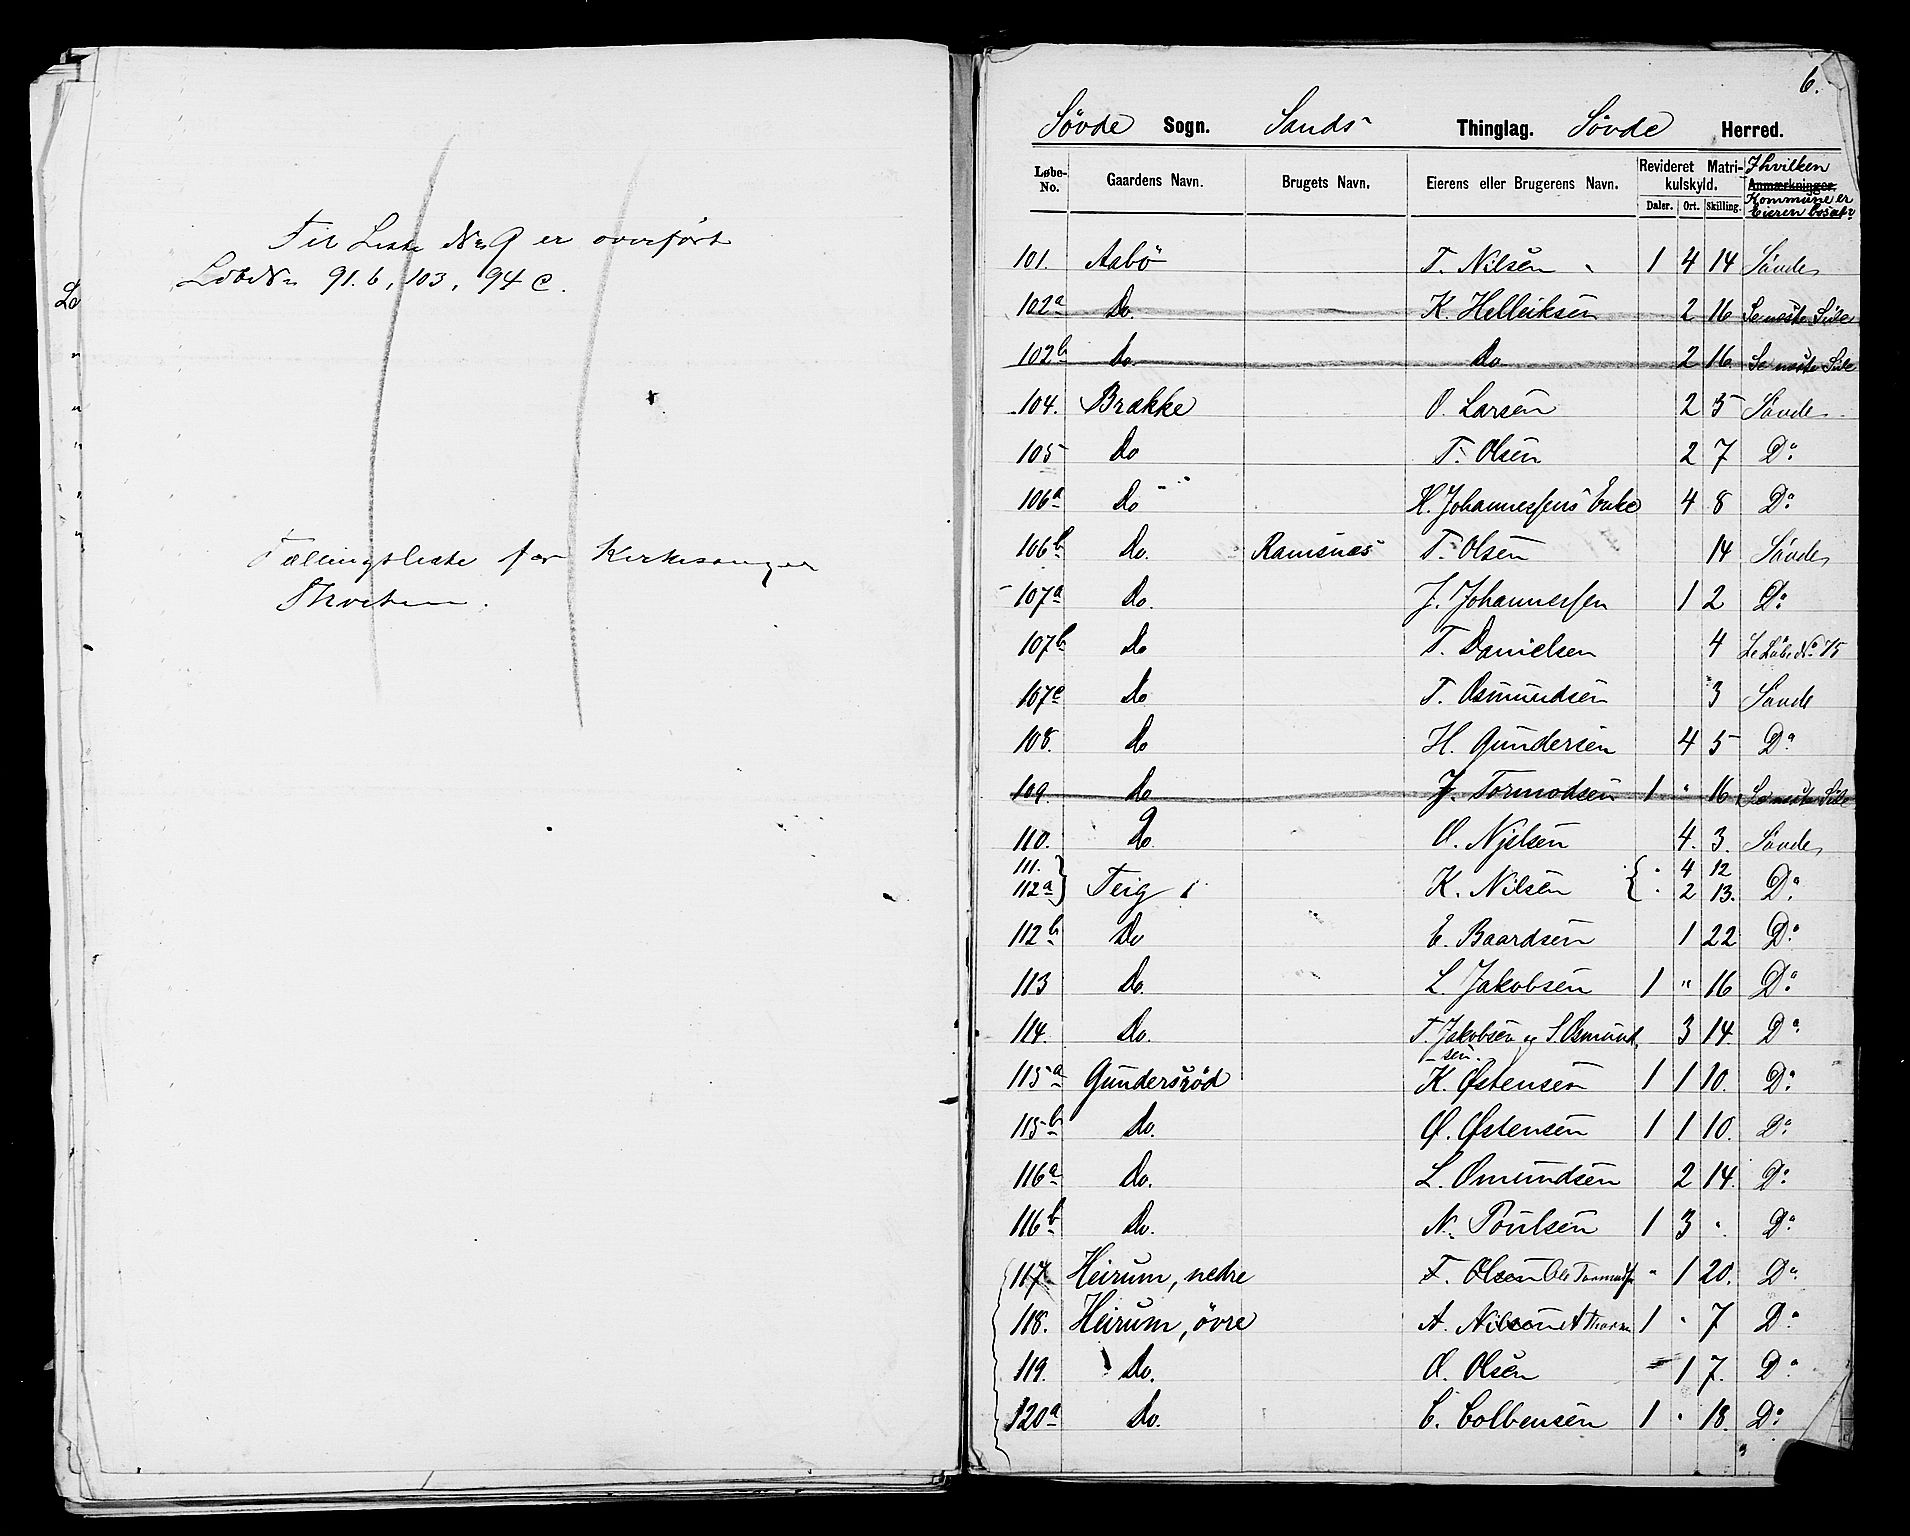 Til Liste No 9 er overført
LöbeNo 91.b, 103, 94 c.
Tællingsliste for Kirkesanger
6.
Søvde Sogn. Sands Thinglag. Søvde Herred.
Løbe-No. Gaardens Navn. Brugets Navn. Eierens eller Brugerens Navn. Revideret Matrikulskyld. Daler. Ort. Skilling. Anmærkninger. I hvilken Kommune er Eieren bosat?
101. Aabö T. Nilsen 1 4 14 Sövde
102a Do. K. Helliksen 2 16 Se næste Side
102b Do. Do 2 16 Se næste Side
104. Brække O. Larsen 2 5 Sövde
105 Do T. Olsen 2 7 Do
106a Do H. Johannessens Enke 4 8 Do
106b Do. Ramsnæs T. Olsen 14 Sövde
107a Do. J. Johannessen 1 2 Do
107b Do T. Danielsen 4 Se Löbe No 75
107c Do T. Osmundsen 3 Sövde
108. Do H. Gundersen 4 5 Do
109. Do J. Tormodsen 1 " 16 Se næste Side
110. Do. O. Njelsen 4. 3. Sövde
111. } 4 12
112a } Teig K. Nilsen { 2 13. Do
112b Do E. Baardsen 1 22 Do
113 Do. L. Jakobsen 1 " 16 Do
114. Do. T. Jakobsen og S. Osmund- 3 14 Do
sen.
115a Gundersrød K. Østensen 1 1 10. Do
115b Do. Ø. Østensen 1 1 10. Do
116a Do. L. Omundsen 2 14. Do
116b Do. N. Poulsen 1 3 " Do
117. Heirum, nedre T. Olsen Ole Tormods " 1 20. Do
118. Heirum, övre A. Nilsen 1 " 7 Do
119. Do. O. Olsen 1 7. Do
120a Do. C. Colbensen 1 " 18. Do